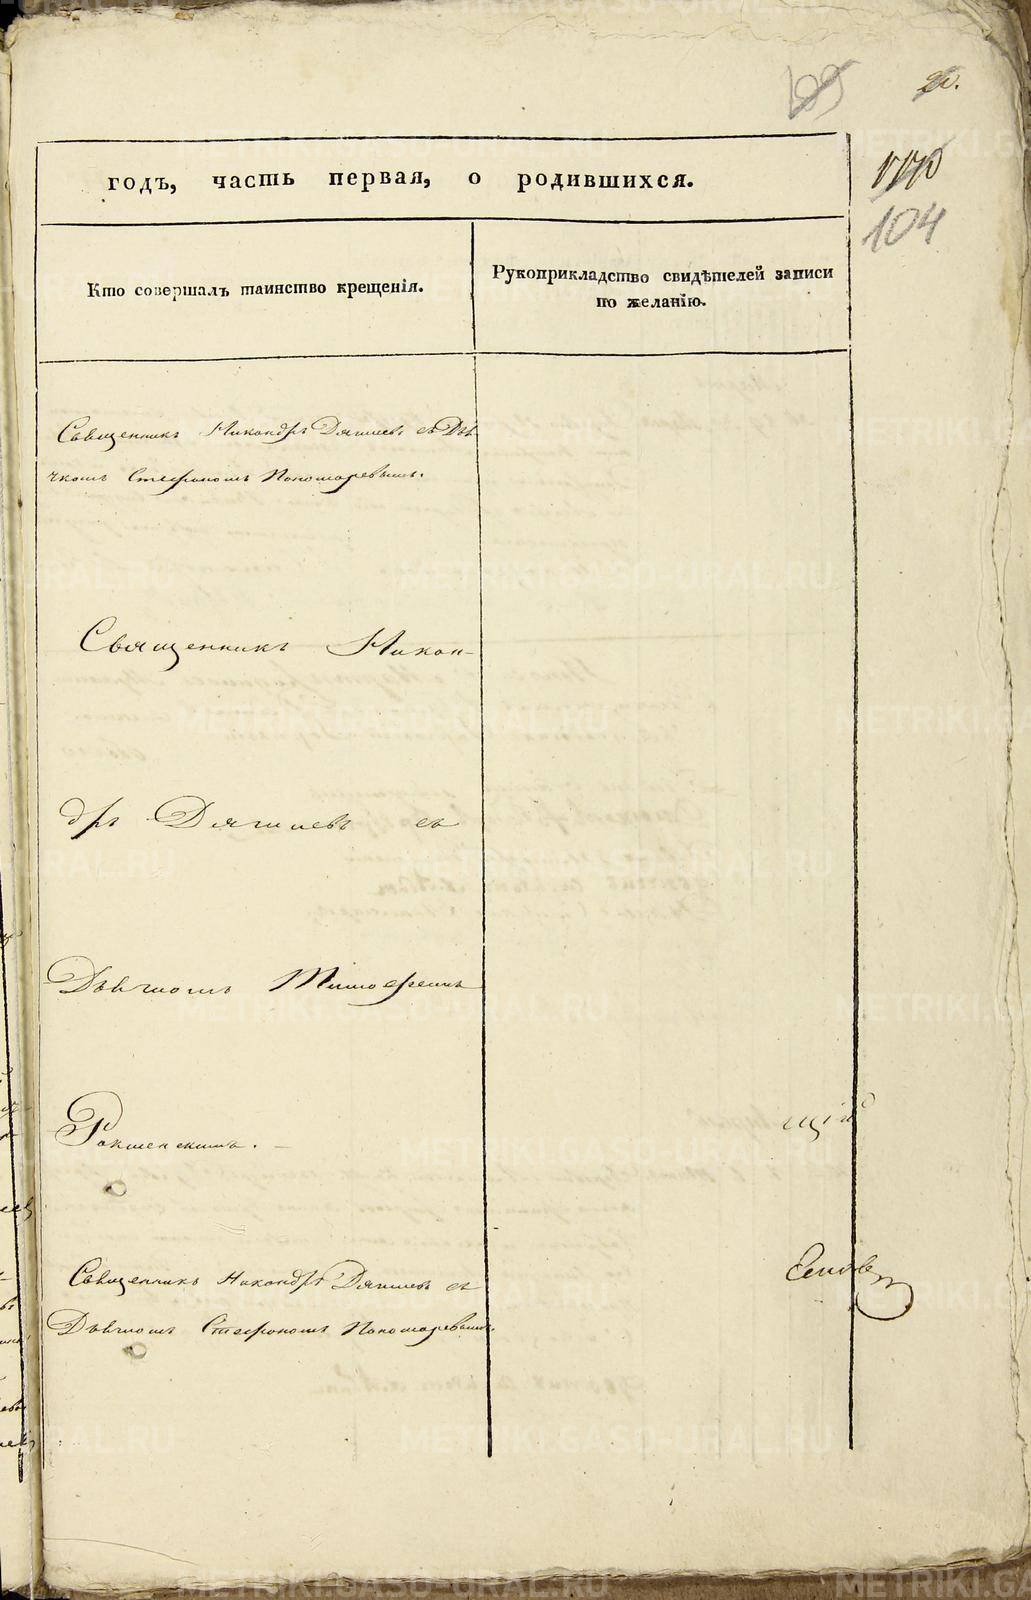 20.
104
годъ, часть первая, о родившихся.
Кто совершалъ таинство крещенія.
Рукоприкладство свидѣтелей записи
по желанію.
Священникъ Никандръ Дягилевъ съ Дья-
чкомъ Стефаномъ Пономаревымъ.
Священникъ Никан-
дръ Дягилевъ съ
Дьячкомъ Тимофеемъ
.
Священникъ Никандръ Дягилевъ съ
Дьячкомъ Стефаномъ Пономаревымъ.
щій
METRIKI.GASO-URAL.RU